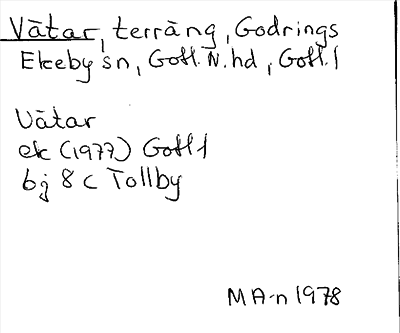 Vätar, terräng, Godrings
Ekeby sn, Gotl. N. hd, Gotl. l
Vätar
ek (1977) Gotl l
bj 8 c Tollby
MA-n 1978